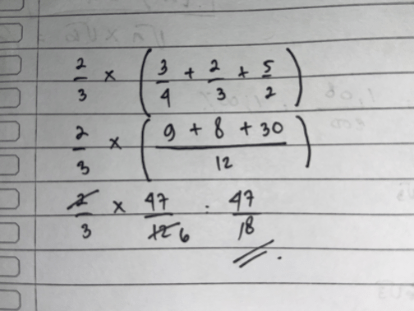 2/3 × (3/4 + 2/3 + 5/2)
2/3 × ((9 + 8 + 30)/12)
2/3 × 47/12 6 : 47/18